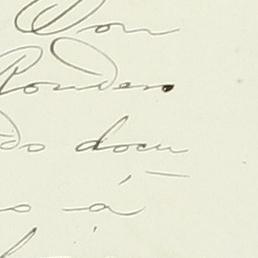 Don
Ronden
do docu
o á